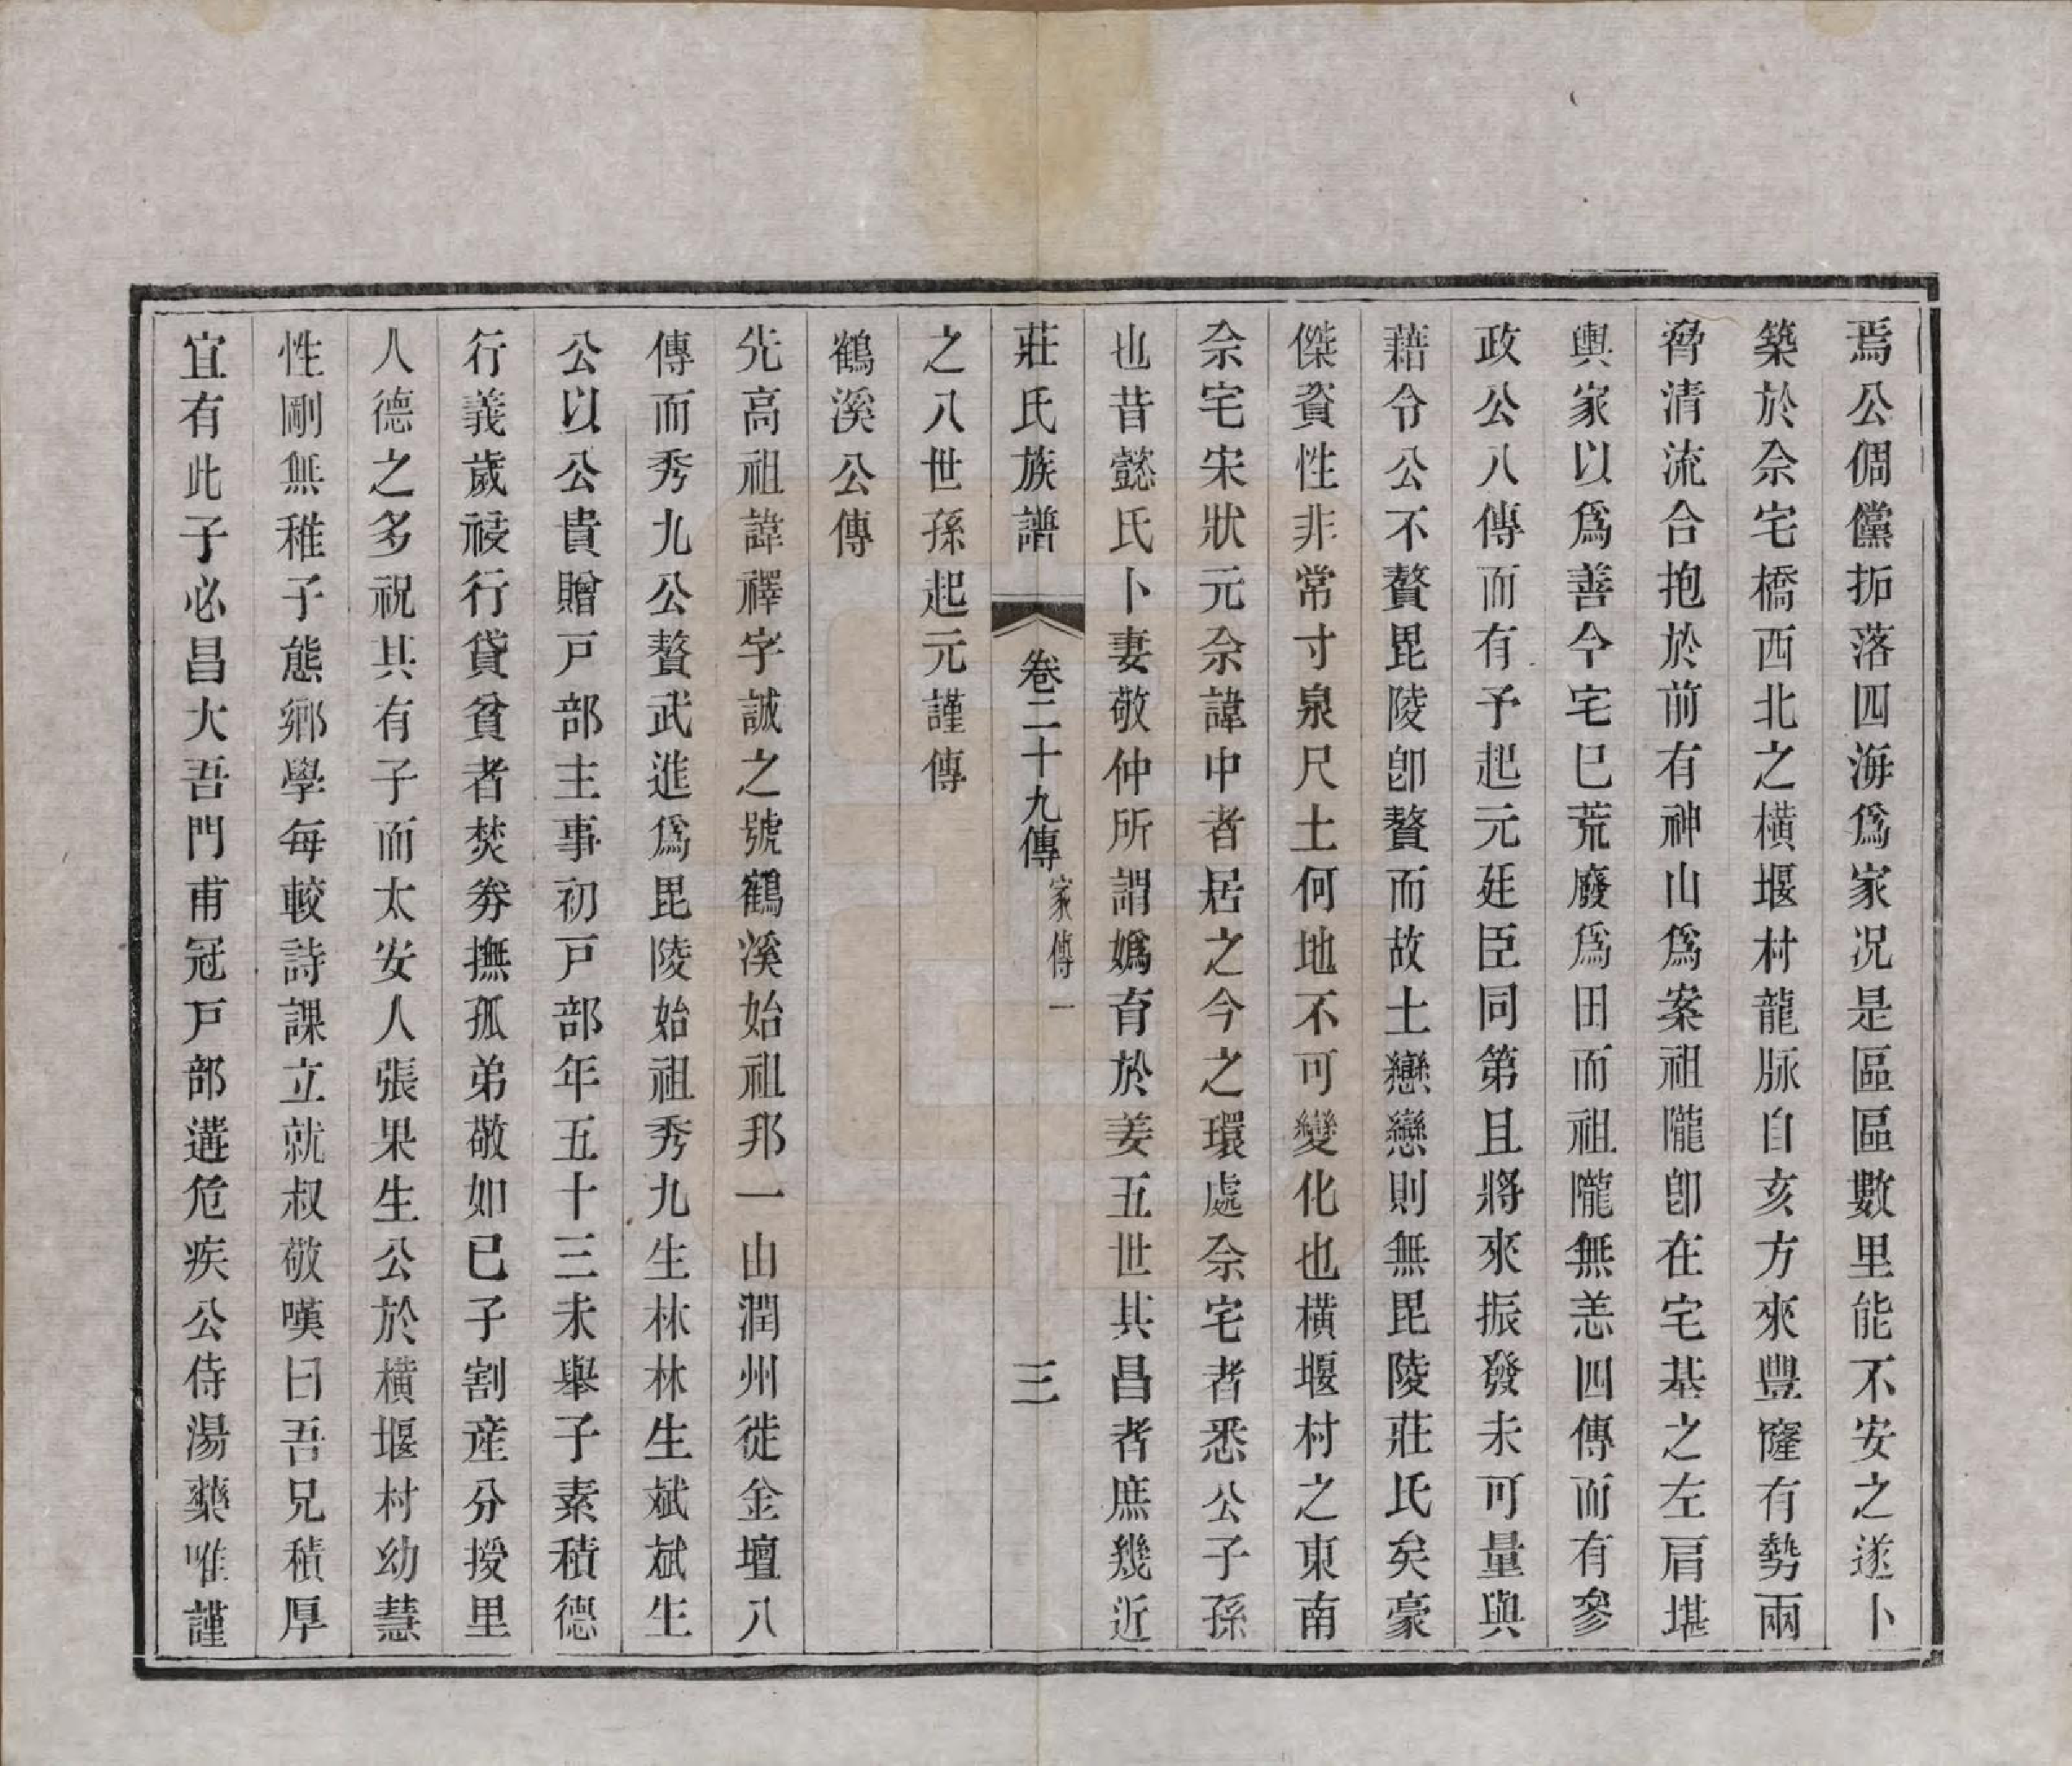 焉公倜儻拓落四海爲家况是區區數里能不安之遂卜
築於佘宅橋西北之橫堰村龍脉自亥方來豐窿有勢兩
脅清流合抱於前有神山爲案祖隴卽在宅基之左肩堪
輿家以爲善今宅巳荒廢爲田而祖隴無恙四傳而有參
政公八傳而有予起元廷臣同第且將來振發未可量與
藉令公不贅毘陵卽贅而故土戀戀則無毘陵莊氏矣豪
傑資性非常寸泉尺土何地不可變化也橫堰村之東南
佘宅宋狀元佘諱中者居之今之環處佘宅者悉公子孫
也昔懿氏卜妻敬仲所謂嬀育於姜五世其昌者庶幾近
莊氏族譜 卷二十九傳 家傳一 三
之八世孫起元謹傳
鶴溪公傳
先高祖諱禪字誠之號鶴溪始祖邦一山潤州徙金壇八
傳而秀九公贅武進爲毘陵始祖秀九生林林生斌斌生
公以公貴贈戸部主事初戸部年五十三未舉子素積德
行義歲祲行貸貧者焚券撫孤弟敬如已子割産分授里
人德之多祝其有子而太安人張果生公於橫堰村幼慧
性剛無稚子態鄉學每較詩課立就叔敬嘆曰吾兄積厚
宜有此子必昌大吾門甫冠戸部遘危疾公侍湯藥唯謹